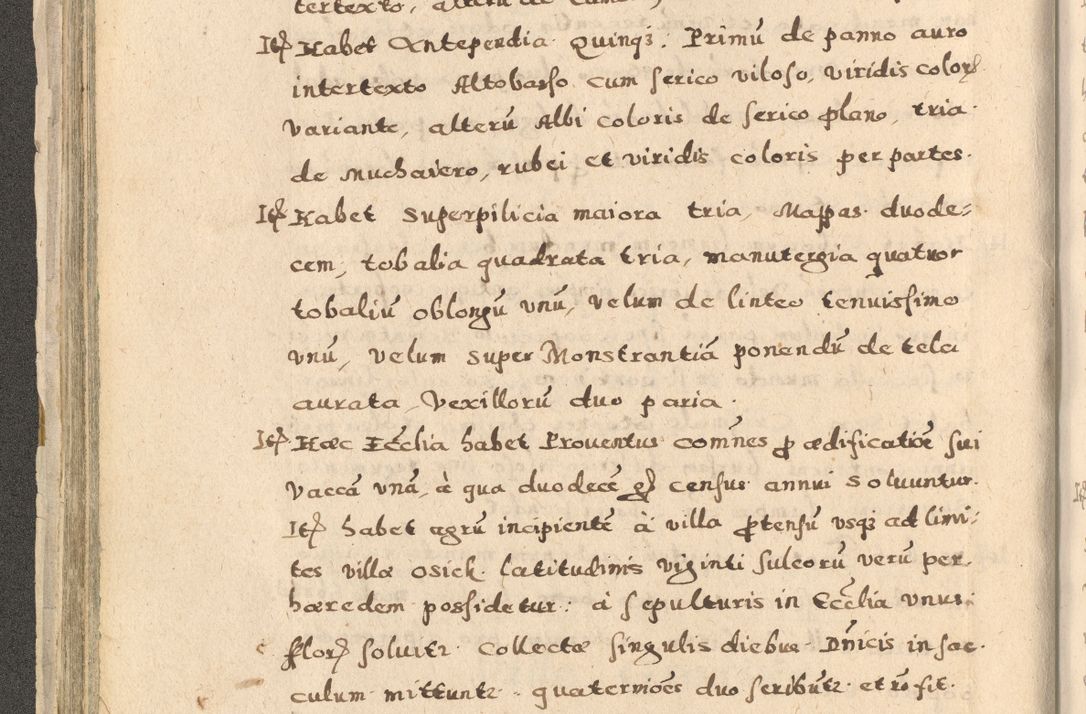 tertexto, alteru de
Itē Habet Antependia Quinqȝ: Primū de panno auro
intertexto Altobasso cum serico viloso, viridis coloris
variante, alterū Albi coloris de serico plano, tria
de Muchaiero, rubei et viridis coloris per partes.
Itē Habet Superpilicia maiora tria, Mappas duode⸗
cem, tobalia quadrata tria, manutergia quatuor
tobaliū oblongū vnū, velum de linteo tenuissimo
vnū, velum super Monstrantiā ponendū de tela
aurata, Vexillorū duo paria.
Itē Hæc Eccl̄ia habet Prouentus com̄nes p̱ ædificatiōe sui
Vaccā vnā, à qua duodecē gr̄ census annui soluuntur.
Itē habet agrū incipientē à villa p̱tensū vsqȝ ad limi⸗
tes villæ Osiek latitudinis viginti sulcorū verū per
hæredem possidetur: à sepulturis in Eccl̄ia vnus
flor̄ soluitr Collectæ singulis diebus Dn̄icis in sac⸗
culum mittuntr quaterniōes duo scributr et rō fit.